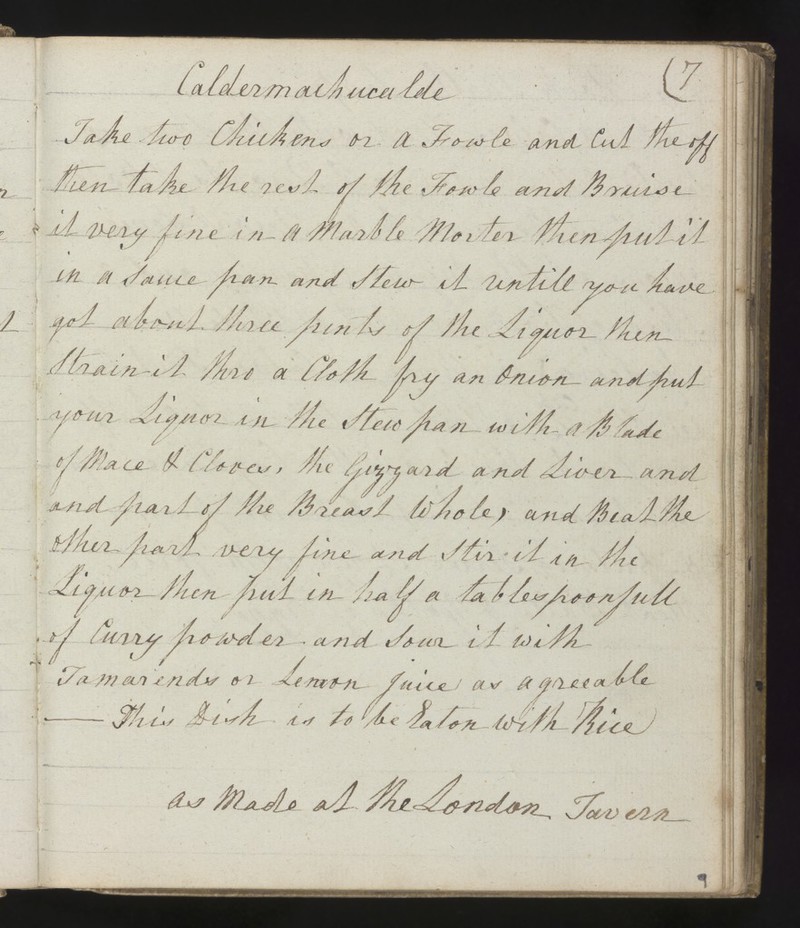 (7
Caldermachucalde
Take two Chickens or a Fowle and Cut the off
then take the rest of the Fowle and Bruise
it very fine in a Marble Morter then put it
in a Sauce pan and Stew it untill you have
got about three pints of the Liquor then
Strain it thro a Cloth fry an Onion and put
your Liquor in the Stew pan with a Blade
of Mace & Cloves, the Gizzard and Liver and
and part of the Breast Whole, and Beat the
other part very fine and Stir it in the
Liquor then put in half a tablespoonfull
of Curry powder and Sour it with
Tamarends or Lemon juice as agreeable
— This Dish is to be Eaton with Rice
as Made at the London Tavern
9